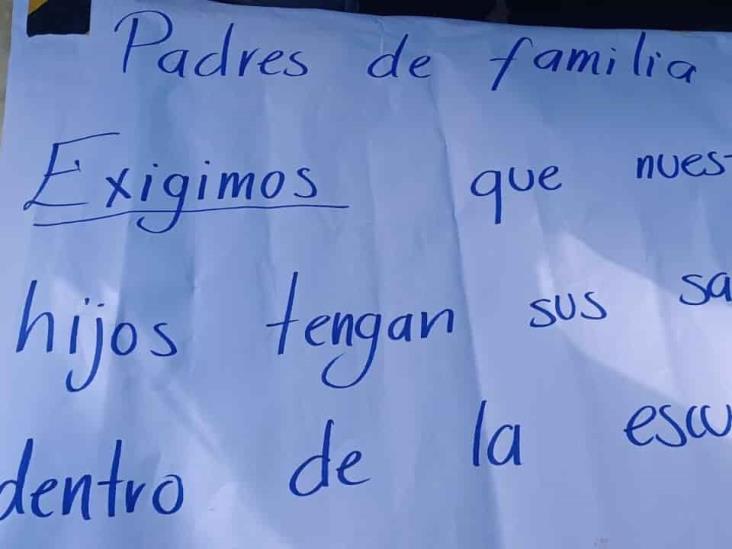 Padres de familia
Exigimos que nues
hijos tengan sus sa
dentro de la escu